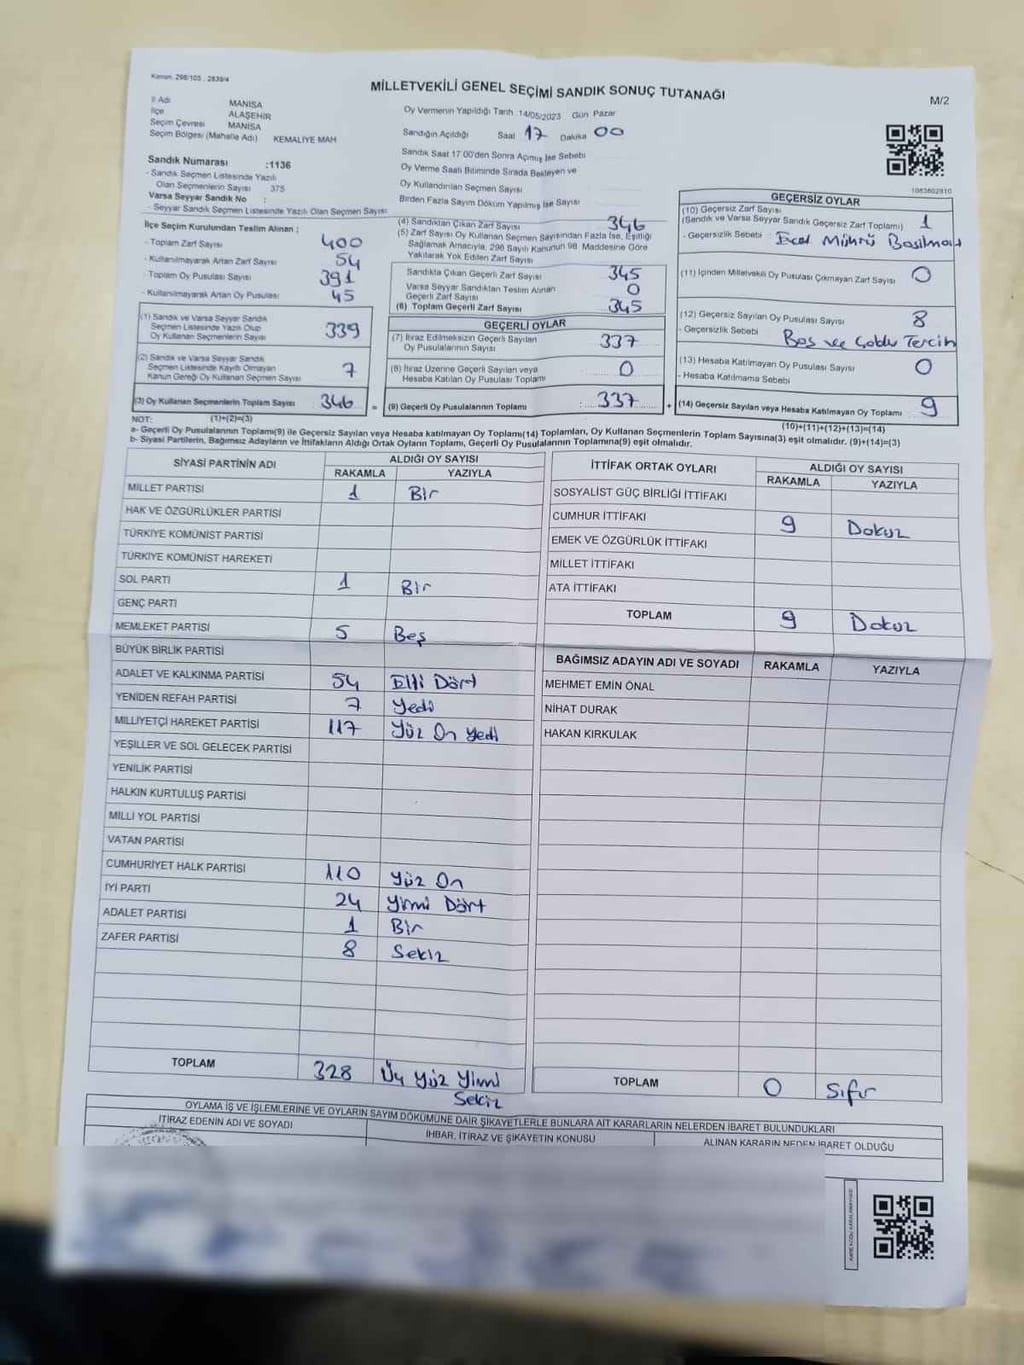 Kanun. 298/103 , 2839/4
MİLLETVEKİLİ GENEL SEÇİMİ SANDIK SONUÇ TUTANAĞI
M/2
İl Adı MANİSA
İlçe ALAŞEHİR
Seçim Çevresi MANİSA
Seçim Bölgesi (Mahalle Adı) KEMALİYE MAH
Sandık Numarası :1136
- Sandık Seçmen Listesinde Yazılı
Olan Seçmenlerin Sayısı 375
Varsa Seyyar Sandık No :
- Seyyar Sandık Seçmen Listesinde Yazılı Olan Seçmen Sayısı:
Oy Vermenin Yapıldığı Tarih 14/05/2023 Gün Pazar
Sandığın Açıldığı Saat 17 Dakika 00
Sandık Saat 17:00'den Sonra Açılmış İse Sebebi
Oy Verme Saati Bitiminde Sırada Bekleyen ve
Oy Kullandırılan Seçmen Sayısı
Birden Fazla Sayım Döküm Yapılmış İse Sayısı
1083602910
İlçe Seçim Kurulundan Teslim Alınan ;
- Toplam Zarf Sayısı 400
- Kullanılmayarak Artan Zarf Sayısı 54
- Toplam Oy Pusulası Sayısı 391
- Kullanılmayarak Artan Oy Pusulası 45
(1) Sandık ve Varsa Seyyar Sandık
Seçmen Listesinde Yazılı Olup
Oy Kullanan Seçmenlerin Sayısı 339
(2) Sandık ve Varsa Seyyar Sandık
Seçmen Listesinde Kayıtlı Olmayan
Kanun Gereği Oy Kullanan Seçmen Sayısı 7
(3) Oy Kullanan Seçmenlerin Toplam Sayısı 346 =
(4) Sandıktan Çıkan Zarf Sayısı 346
(5) Zarf Sayısı Oy Kullanan Seçmen Sayısından Fazla İse, Eşitliği
Sağlamak Amacıyla, 298 Sayılı Kanunun 98. Maddesine Göre
Yakılarak Yok Edilen Zarf Sayısı
Sandıkta Çıkan Geçerli Zarf Sayısı 345
Varsa Seyyar Sandıktan Teslim Alınan
Geçerli Zarf Sayısı 0
(6) Toplam Geçerli Zarf Sayısı 345
GEÇERLİ OYLAR
(7) İtiraz Edilmeksizin Geçerli Sayılan
Oy Pusulalarının Sayısı 337
(8) İtiraz Üzerine Geçerli Sayılan veya
Hesaba Katılan Oy Pusulası Toplamı 0
(9) Geçerli Oy Pusulalarının Toplamı : 337 +
GEÇERSİZ OYLAR
(10) Geçersiz Zarf Sayısı
(Sandık ve Varsa Seyyar Sandık Geçersiz Zarf Toplamı) 1
- Geçersizlik Sebebi Evet Mührü Basılması
(11) İçinden Milletvekili Oy Pusulası Çıkmayan Zarf Sayısı 0
(12) Geçersiz Sayılan Oy Pusulası Sayısı 8
- Geçersizlik Sebebi Boş ve Çoklu Tercih
(13) Hesaba Katılmayan Oy Pusulası Sayısı 0
- Hesaba Katılmama Sebebi
(14) Geçersiz Sayılan veya Hesaba Katılmayan Oy Toplamı 9
NOT: (1)+(2)=(3) (10)+(11)+(12)+(13)=(14)
a- Geçerli Oy Pusulalarının Toplamı(9) ile Geçersiz Sayılan veya Hesaba katılmayan Oy Toplamı(14) Toplamları, Oy Kullanan Seçmenlerin Toplam Sayısına(3) eşit olmalıdır. (9)+(14)=(3)
b- Siyasi Partilerin, Bağımsız Adayların ve İttifakların Aldığı Ortak Oyların Toplamı, Geçerli Oy Pusulalarının Toplamına(9) eşit olmalıdır.
SİYASİ PARTİNİN ADI ALDIĞI OY SAYISI
RAKAMLA YAZIYLA
MİLLET PARTİSİ 1 Bir
HAK VE ÖZGÜRLÜKLER PARTİSİ
TÜRKİYE KOMÜNİST PARTİSİ
TÜRKİYE KOMÜNİST HAREKETİ
SOL PARTİ 1 Bir
GENÇ PARTİ
MEMLEKET PARTİSİ 5 Beş
BÜYÜK BİRLİK PARTİSİ
ADALET VE KALKINMA PARTİSİ 54 Elli Dört
YENİDEN REFAH PARTİSİ 7 Yedi
MİLLİYETÇİ HAREKET PARTİSİ 117 Yüz On Yedi
YEŞİLLER VE SOL GELECEK PARTİSİ
YENİLİK PARTİSİ
HALKIN KURTULUŞ PARTİSİ
MİLLİ YOL PARTİSİ
VATAN PARTİSİ
CUMHURİYET HALK PARTİSİ 110 Yüz On
İYİ PARTİ 24 Yirmi Dört
ADALET PARTİSİ 1 Bir
ZAFER PARTİSİ 8 Sekiz
TOPLAM 328 Üç Yüz Yirmi
Sekiz
İTTİFAK ORTAK OYLARI ALDIĞI OY SAYISI
RAKAMLA YAZIYLA
SOSYALİST GÜÇ BİRLİĞİ İTTİFAKI
CUMHUR İTTİFAKI 9 Dokuz
EMEK VE ÖZGÜRLÜK İTTİFAKI
MİLLET İTTİFAKI
ATA İTTİFAKI
TOPLAM 9 Dokuz
BAĞIMSIZ ADAYIN ADI VE SOYADI RAKAMLA YAZIYLA
MEHMET EMİN ÖNAL
NİHAT DURAK
HAKAN KIRKULAK
TOPLAM 0 Sıfır
OYLAMA İŞ VE İŞLEMLERİNE VE OYLARIN SAYIM DÖKÜMÜNE DAİR ŞİKAYETLERLE BUNLARA AİT KARARLARIN NELERDEN İBARET BULUNDUKLARI
İTİRAZ EDENİN ADI VE SOYADI İHBAR, İTİRAZ VE ŞİKAYETİN KONUSU ALINAN KARARIN NEDEN İBARET OLDUĞU